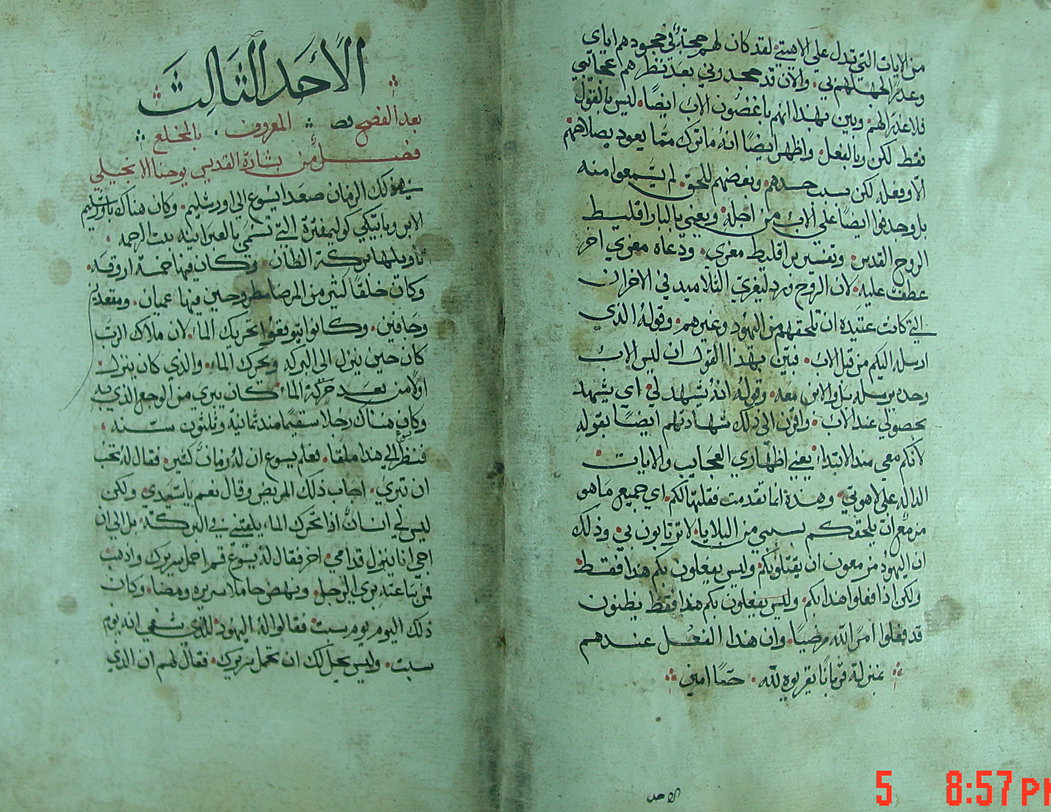 من الايات التي تدل على لاهوتي لقد كان لهم حجة في جحودهم اياي
وعذر الجهلهم بي والان قد جحدوني بعد نظرهم عجائبي
فلا عذر لهم وبين بهذا انهم يبغضون الاب ايضا ليس بالقول
فقط لكن وبالفعل واظهر ايضا انه ما ترك مما يعود بصلاحهم
الا وفعله لكن بسبب حسدهم وبغضهم للحق لم يسمعوا منه
بل وجدفوا ايضا على الاب من اجله ويعني بالباراقليط
الروح القدس وتفسير براقليط معزي ودعاه معزي اخر
عطف عليه لان الروح ورد ليعزي التلاميذ في الاحزان
التي كانت عتيدة ان تلحقهم من اليهود وغيرهم وقوله الذي
ارسله اليكم من قبل الاب فبين بهذا القول ان ليس الاب
وحده يرسله بل والابن معه وقوله انه يشهد لي اي يشهد
بحصولي عند الاب واقرن الى ذلك شهادتهم ايضا بقوله
لانكم معي منذ الابتدا يعني اظهاري العجايب والايات
الداله على لاهوتي وهذه انما تقدمت فقلتها لكم اي جميع ما هو
مزمع ان يلحقكم بسببي من البلايا لا ترتابون بي وذلك
ان اليهود مزمعون ان يقتلونكم وليس يفعلون بكم هذا فقط
ولكن اذا فعلوا هذا بكم وليس يفعلون بكم هذا فقط يظنون
قد فعلوا امر الله مرضيا وان هذا الفعل عندهم
بمنزلة قربانا يقربوه لله حقا امين
الاحد
الاحد الثالث
بعد الفصح المعروف بالمخلع
فصل من بشارة القديس يوحنا الانجيلي
في ذلك الزمان صعد ايسوع الى اورشليم وكان هناك باورشليم
الابروباتيكي كوليمفثرة التي تسمى بالعبرانيه بيت الرحمه
تاويلها بركة الضان وكان فيها خمسة اروقه
وكان خلقا كثير من المرضا مطروحين فيها عميان ومقعدين
وجافين وكانوا يتوقعوا تحريك الماء لان ملاك الرب
كان حين ينزل الى البركه ويحرك الماء والذي كان ينزل
اولا من بعد حركة الماء كان يبري من الوجع الذي به
وكان هناك رجلا سقيما منذ ثمانية وثلثون سنه
فنظر الى هذا ملقا فعلم يسوع ان له زمان كثير فقال له تحب
ان تبري اجاب ذلك المريض وقال نعم يا سيدي ولكن
ليس لي انسان اذا تحرك الماء يلقيني في البركة بل الى ان
اجي انا ينزل قدامي اخر فقال له يسوع قم احمل سريرك واذهب
فمن ساعته بري الرجل ونهض حاملا سريره ومضا وكان
ذلك اليوم يوم سبت فقالوا له اليهود للذي شفي انه يوم
سبت وليس يحل لك ان تحمل سريرك فقال لهم ان الذي
5 8:57 PM